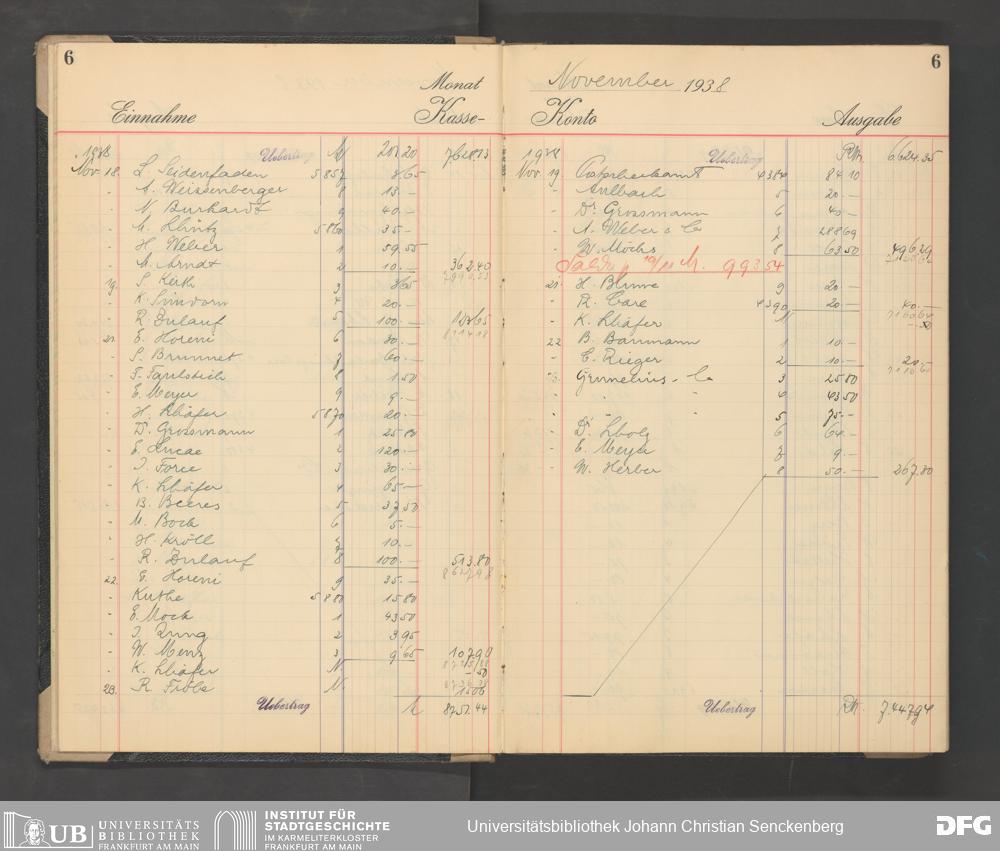 6
Monat
Einnahme Kasse-
1938 Uebertrag 20 7628.13
Nov. 18. L. Seidenfaden 5857 8 65
A. Weissenberger 8 13.—
N. Burkhardt 9 40.—
5860 35.—
H. Weber 1 59.55
A. Arndt 2 10.— 362.40
19. S. Kerk 3 8 65
K. 4 20.—
R. Zulauf 5 100.—
21. E. Horeni 6 80.—
S. Brummet 7 60.—
8 1.50
E. Meyer 9 9.—
H. Schäfer 5870 20.—
Dr. Grossmann 1 25 80
E. Lucae 2 120.—
J. Force 3 30.—
K. Schäfer 4 65.—
B. Beeres 5 37,50
M. Bock 6 5.—
H. Kröll 7 10.—
R. Zulauf 8 100.— 513.80
22. E. Horeni 9 35.—
Kuthe 5880 15 80
E. Mock 1 43 50
J. Jung 2 3,95
W. Menz 3 9 65 107.90
K. Schäfer N —.50
23. R. N. 15.06
Uebertrag 8751.44
6
November 1938
Konto Ausgabe
1938 Uebertrag RM. 6624.35
Nov. 19. 84 10
Aulbach 5 20.—
Dr. Grossmann 6 40.—
A. Weber & Co 7 288 69
W. Möchs 8 63 50 496.29
Saldo 19/11 M. 993.54
21. H. Blume 9 20.—
R. Care 4390 20.— 40.—
K. Schäfer N —.50
22. B. Baumann 1 10.—
C. Rieger 2 10.— 20.—
3 25 80
" " 4 43 50
" " 5 75.—
Dr. Scholz 6 64.—
E. Meyer 7 9.—
W. Herber 8 50.— 267.80
Uebertrag RM. 7.447,94
UB UNIVERSITÄTS
BIBLIOTHEK
FRANKFURT AM MAIN
INSTITUT FÜR
STADTGESCHICHTE
IM KARMELITERKLOSTER
FRANKFURT AM MAIN
Universitätsbibliothek Johann Christian Senckenberg
DFG